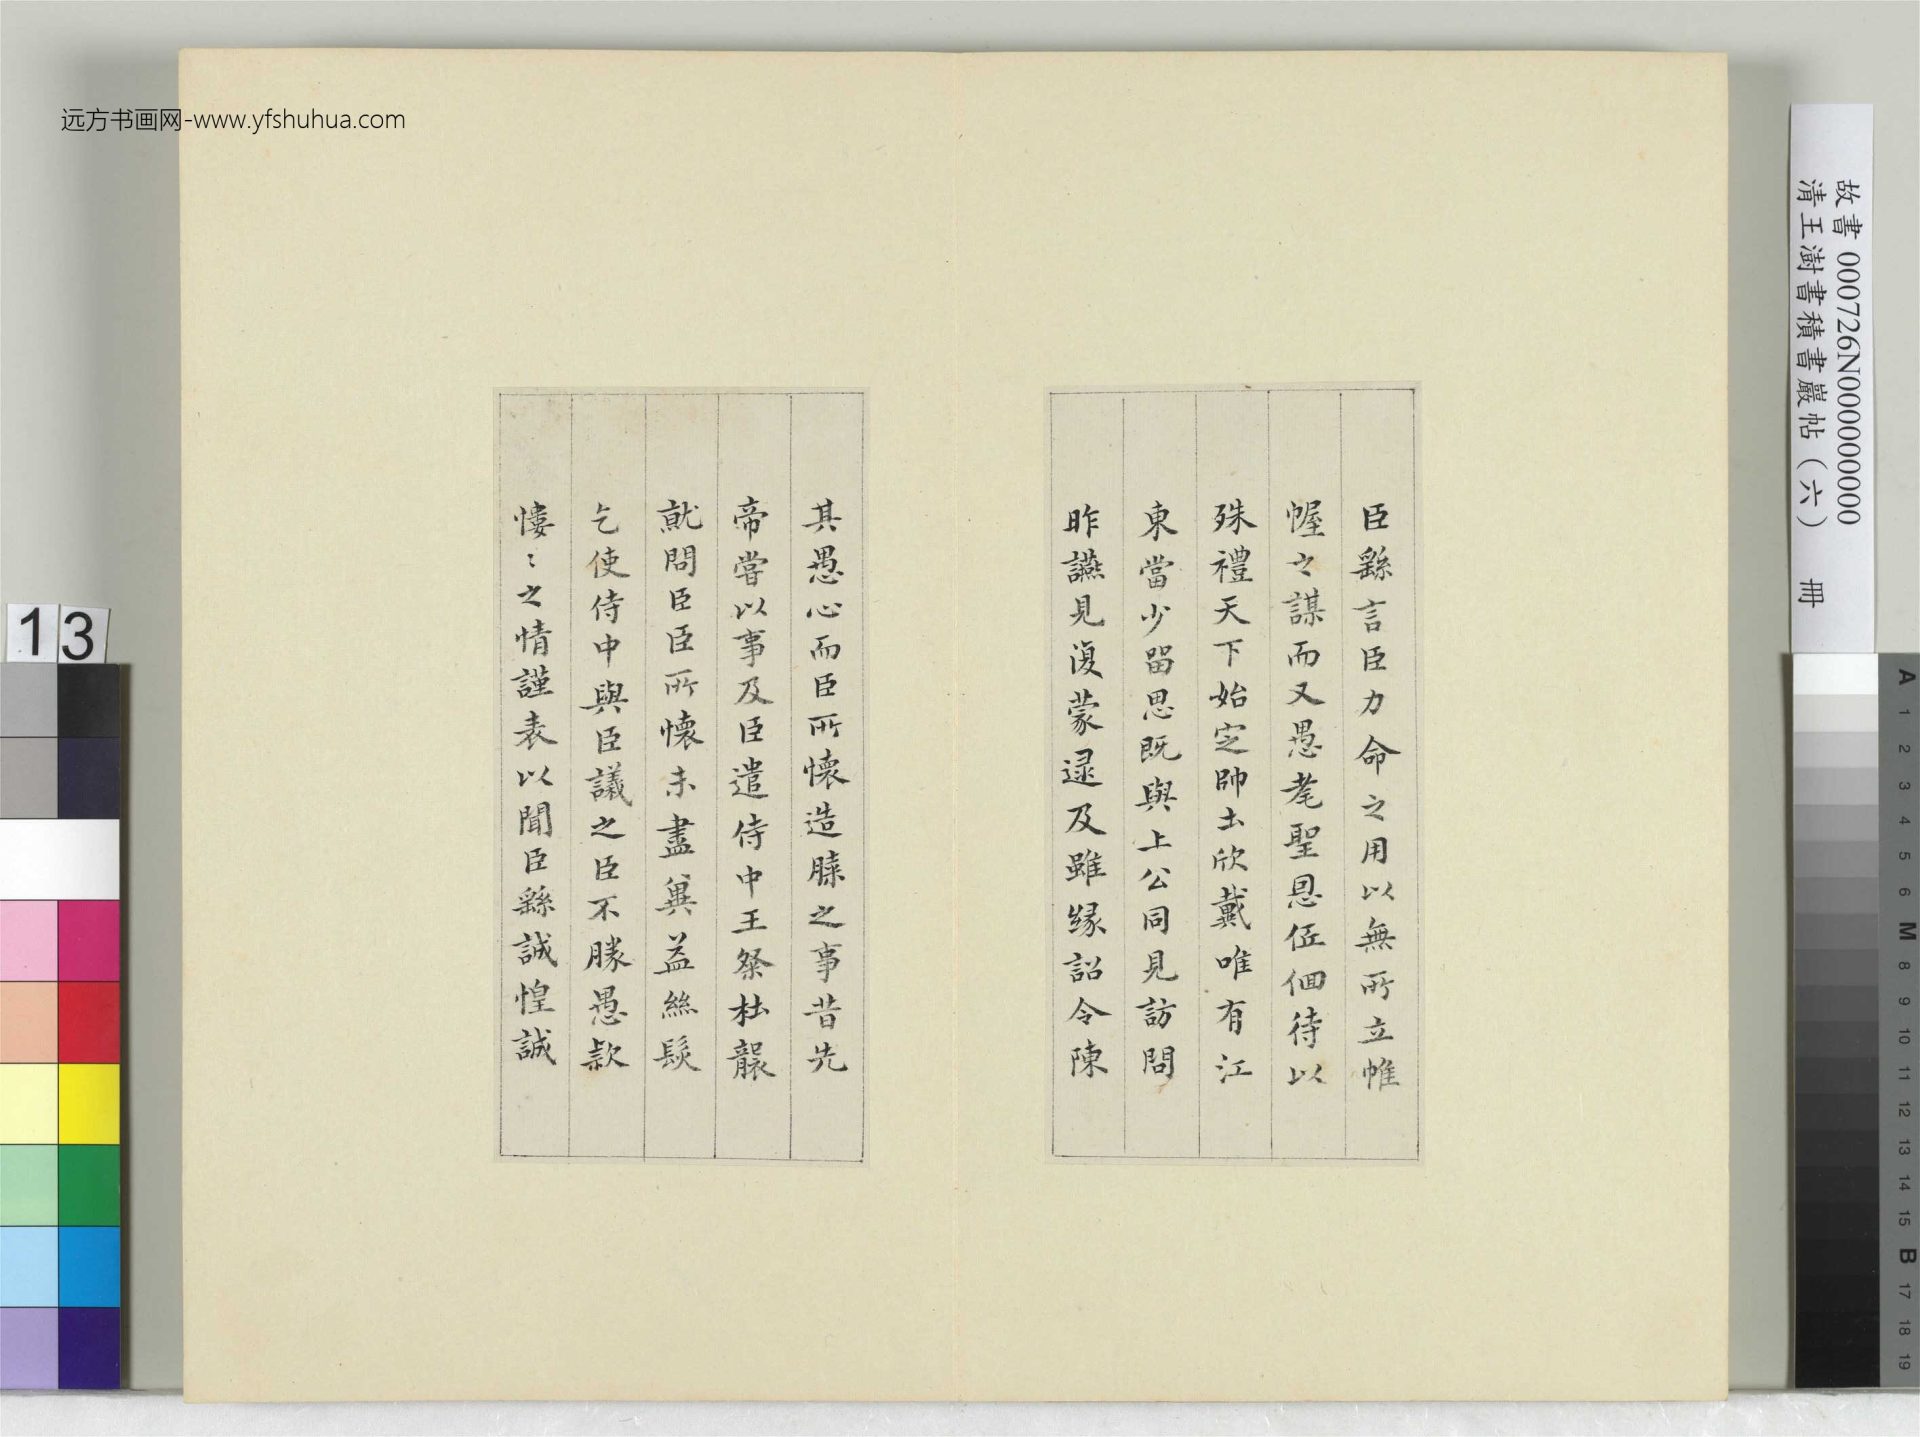 远方书画网-www.yfshuhua.com
故書 000726N000000000
清王澍書積書巖帖（六） 冊
臣繇言臣力命之用以無所立帷
幄之謀而又愚耄聖恩低佪待以
殊禮天下始定帥土欣戴唯有江
東當少留思既與上公同見訪問
昨讌見復蒙逯及雖緣詔令陳
其愚心而臣所懷造膝之事昔先
帝嘗以事及臣遣侍中王粲杜襲
就問臣臣所懷未盡冀益絲髮
乞使侍中與臣議之臣不勝愚款
慺〻之情謹表以聞臣繇誠惶誠
13
A
1
2
3
4
5
6
M
8
9
10
11
12
13
14
15
B
17
18
19